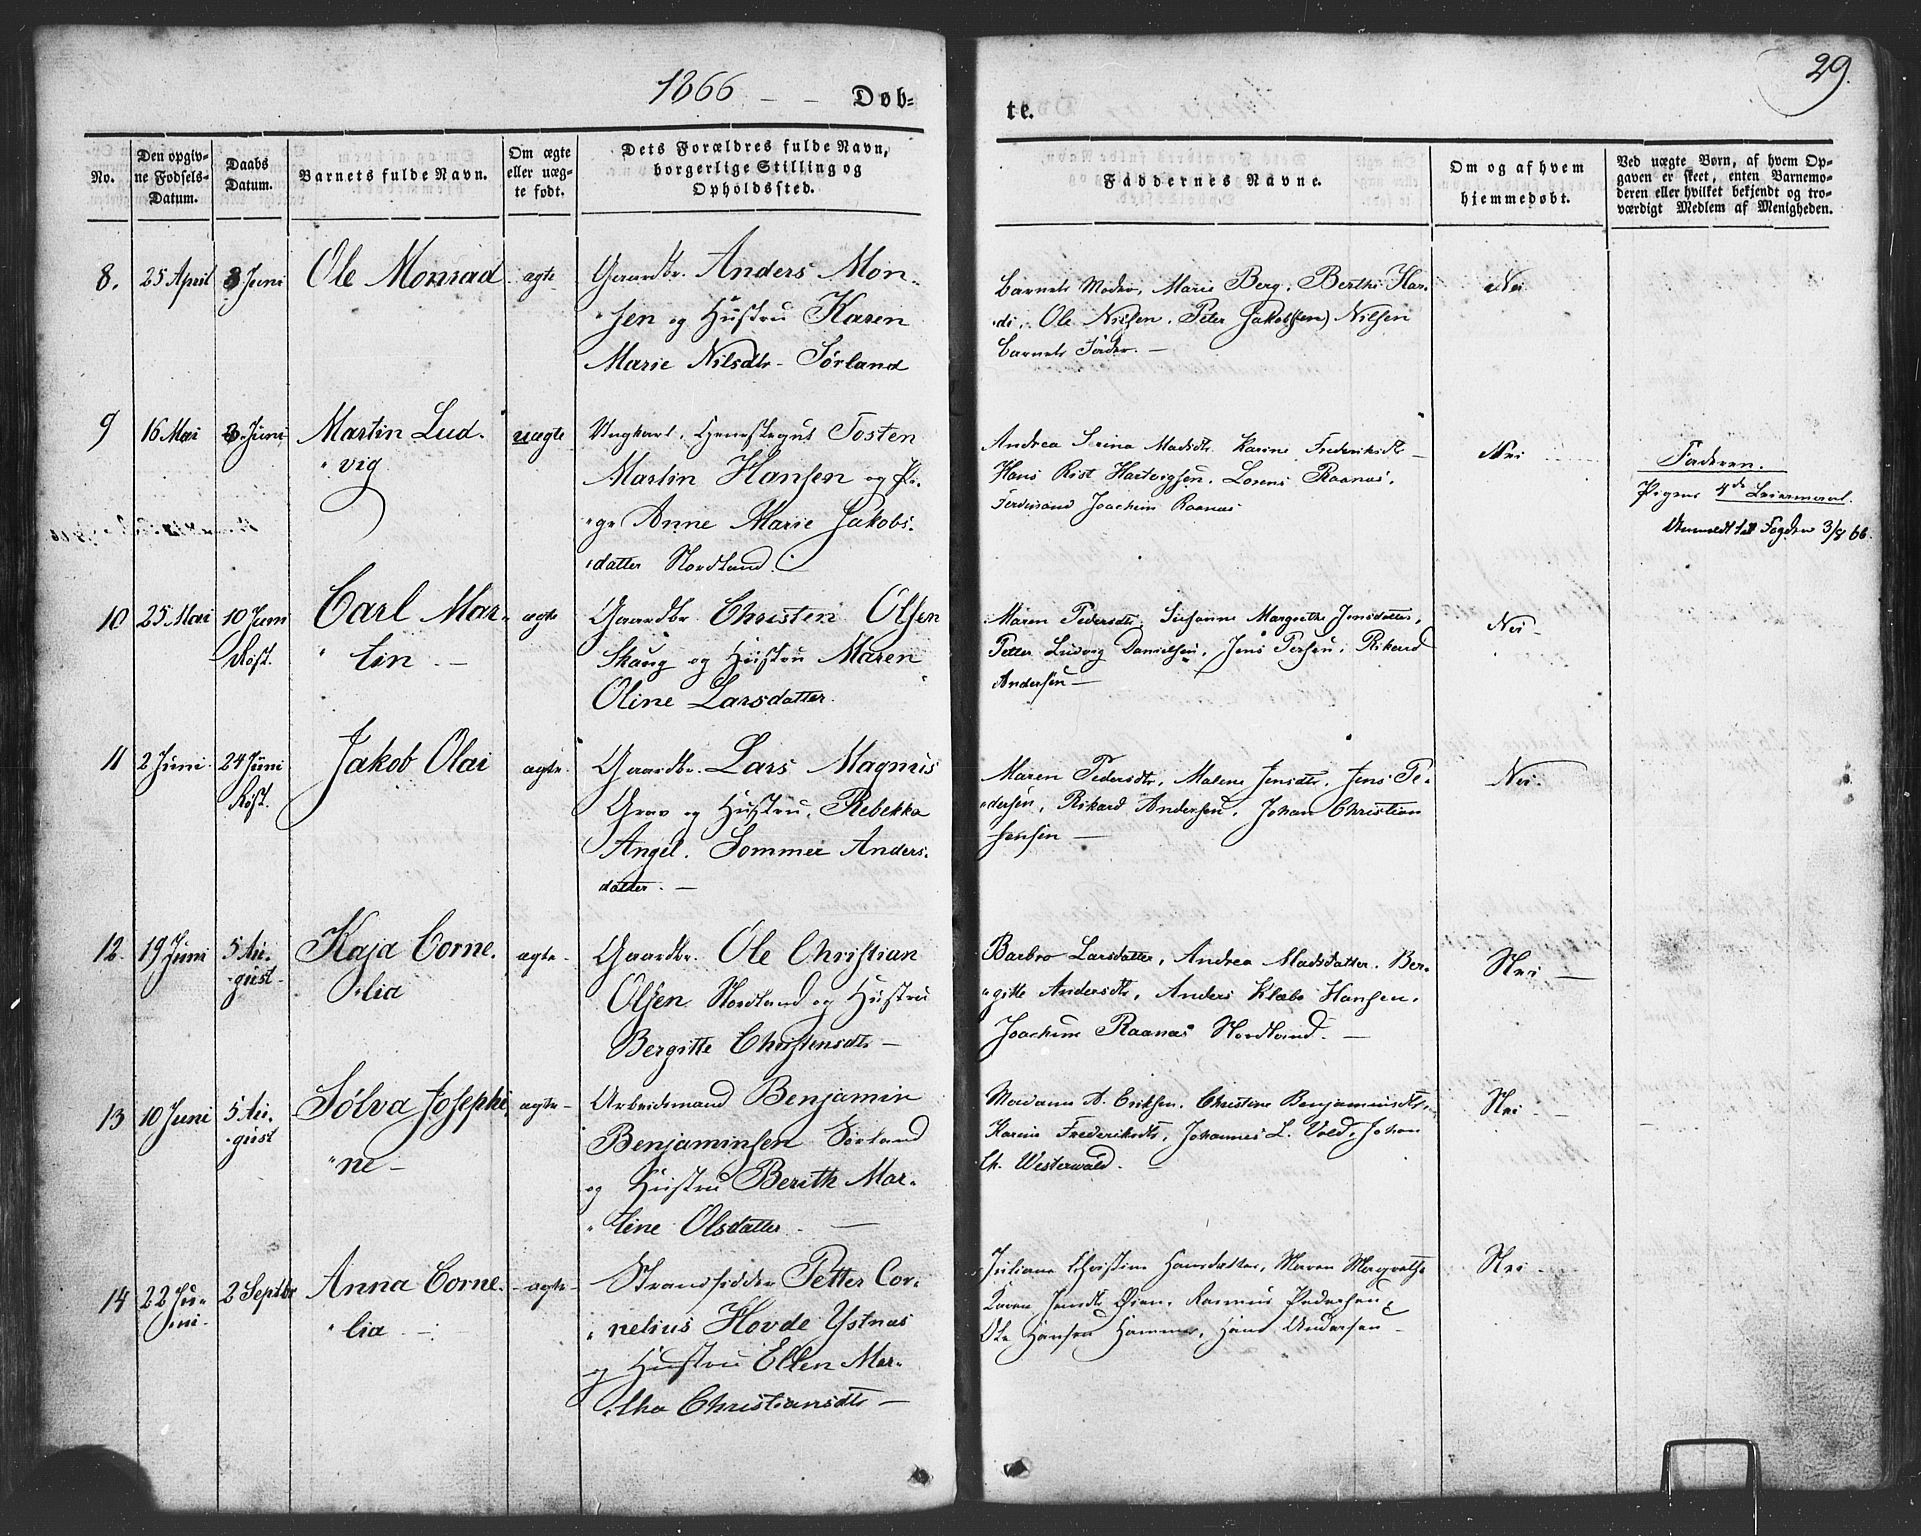 1866 - - Døb=
te.
29.
No.
Den opgiv-
ne Fødsels-
Datum.
Daabs
Datum.
Barnets fulde Navn.
Om ægte
eller uæg-
te født.
Dets Forældres fulde Navn,
borgerlige Stilling og
Opholdssted.
Faddernes Navne.
Om og af hvem
hjemmedøbt.
Ved uægte Børn, af hvem Op-
gaven er skeet, enten Barnemo-
deren eller hvilket bekjendt og tro-
værdigt Medlem af Menigheden.
8.
25 April
3 Juni
Ole Monrad
ægte
Gaardbr. Anders Mon-
sen og Hustru Karen
Marie Nilsdtr. Sørland
Barnets Moder, Marie Berg, Berthe Har-
di, Ole Nielsen, Peter Jakob(sen) Nilsen
Barnets Fader. -
Nei
9
16 Mai
3. Juni
Martin Lud-
vig
uægte
Ungkarl, Tosten
Martin Hansen og Pi-
ge Anne Marie Jakobs-
datter Nordland.
Andrea Serina Madsdtr. Karine Frederiksdtr -
Hans Rist Hartvigsen. Lorens Raanas,
Ferdinand Joachim Raanas
Nei
Faderen.
Pigens 4de Leiermaal.
Anmeldt til Fogden 3/8 66.
10
25 Mai
10 Juni
Røst.
Carl Mar-
tin -
ægte
Gaardbr Christen Olsen
Skaug og Hustru Maren
Oline Larsdatter.
Maren Pedersdtr. Susanne Margrethe Jensdatter,
Petter Ludvig Danielsen, Jens Persen, Rikard
Andersen -
Nei -
11
2 Juni.
24 Juni
Røst.
Jakob Olai
ægte.
Gaardbr. Lars Magnus
Grav og Hustru, Rebekka
Angel. Sommer Anders-
datter. -
Maren Pedersdtr, Malene Jensdtr. Jens Pe-
dersen, Rikard Andersen, Johan Christian
Jensen -
Nei.
12.
19 Juni
5 Au-
gust -
Kaja Corne-
lia
ægte -
Gaardbr. Ole Christian
Olsen Nordland og Hustru
Bergitte Christensdtr -
Barbro Larsdatter, Andrea Madsdatter. Ber-
gitte Andersdtr, Anders Klæbo Hansen,
Joachim Raanas Nordland. -
Nei -
13
10 Juni
5 Au-
gust
Sølva Josephi-
ne -
ægte -
Arbeidsmand Benjamin
Benjaminsen Sørland
og Hustru Berith Mar-
tine Olsdatter. -
Madame A. Eriksen, Christine Benjaminsdtr,
Karine Frederiksdtr, Johannes L. Vold, Johan
Ch. Westerwald. -
Nei -
14
22 Ju-
ni.
2 Septbr
Anna Corne-
lia -
- ægte -
Strandsidder Petter Cor-
nelius Hovde Ystnæs
og Hustru Ellen Mar-
tha Christiansdtr -
Juliane Christine Hansdatter, Maren Margrethe
Karen Jensdtr Øien, Rasmus Pedersen,
Ole Hansen Hammer, Hans Andersen -
Nei -